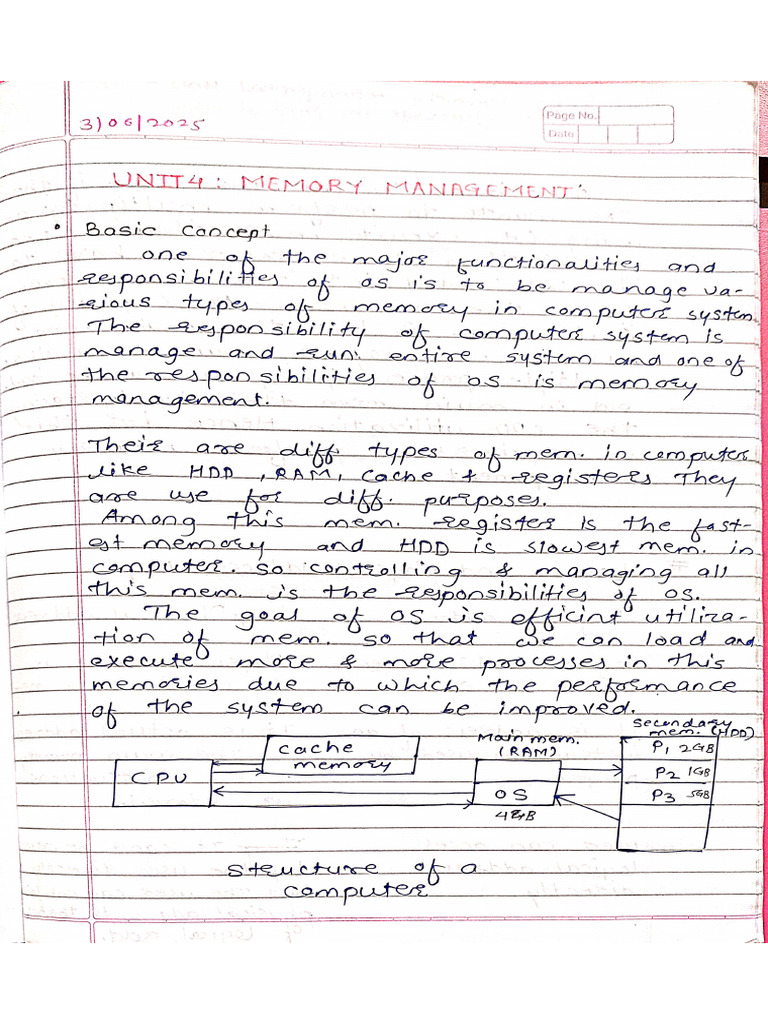 3)06/2025
Page No.
Date
UNIT4: MEMORY MANAGEMENT:
• Basic Concept
one of the major functionalities and
responsibilities of OS is to be manage va-
rious types of memory in computer system
The responsibility of computer system is
manage and run entire system and one of
the responsibilities of OS is memory
management.
Their are diff types of mem. in computer
like HDD, RAM, Cache & registers They
are use for diff. purposes.
Among this mem. register is the fast-
est memory and HDD is slowest mem. in
computer. so controlling & managing all
this mem. is the responsibilities of OS.
The goal of OS is efficint utiliza-
tion of mem. so that we can load and
execute more & more processes in this
memories due to which the performance
of the system can be improved.
CPU
cache
memory
Main mem.
(RAM)
OS
4GB
Secondary
mem. (HDD)
P1 2GB
P2 1GB
P3 5GB
structure of a
computer